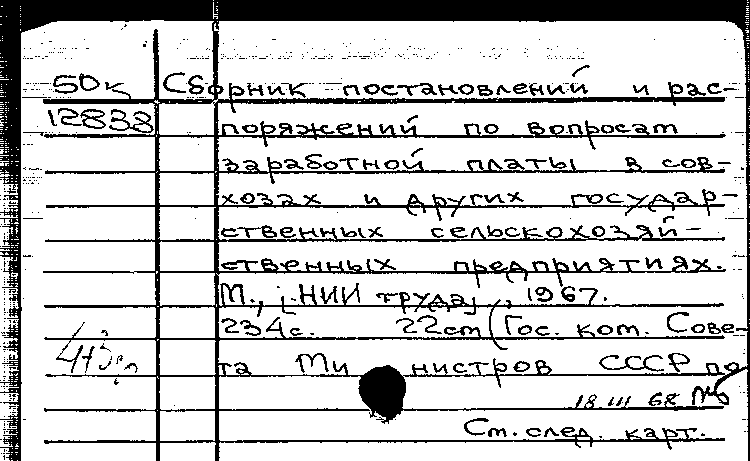 50к Сборник постановлений и рас-
12838 поряжений по вопросам
заработной платы в сов-
хозах и других государ-
ственных сельскохозяй-
ственных предприятиях.
М., [НИИ труда], 1967.
234с. 22см (Гос. ком. Сове-
та Министров СССР по
18 III 68
См. след. карт.